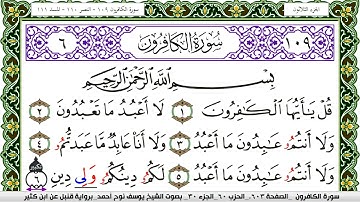 الجزء الثلاثون
سورة الكافرون ١٠٩ - النصر ١١٠ - المسد ١١١
٦ سُورَةُ الكَافِرُونَ ١٠٩
بِسْمِ اللَّهِ الرَّحْمَٰنِ الرَّحِيمِ
قُلْ يَٰٓأَيُّهَا ٱلْكَٰفِرُونَ ١ لَآ أَعْبُدُ مَا تَعْبُدُونَ ٢
وَلَآ أَنتُمُۥ عَٰبِدُونَ مَآ أَعْبُدُ ٣ وَلَآ أَنَا۠ عَابِدٌ مَّا عَبَدتُّمُۥ ٤
وَلَآ أَنتُمُۥ عَٰبِدُونَ مَآ أَعْبُدُ ٥ لَكُمُۥ دِينُكُمُۥ وَلِى دِينِ ٦
سورة الكافرون _الصفحة ٦٠٣_ الحزب ٦٠_الجزء ٣٠_ بصوت الشيخ يوسف نوح أحمد_ برواية قنبل عن ابن كثير